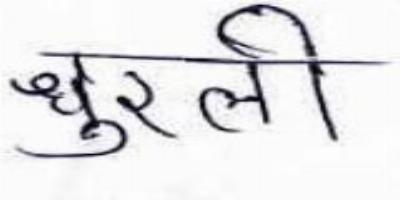 धुरली